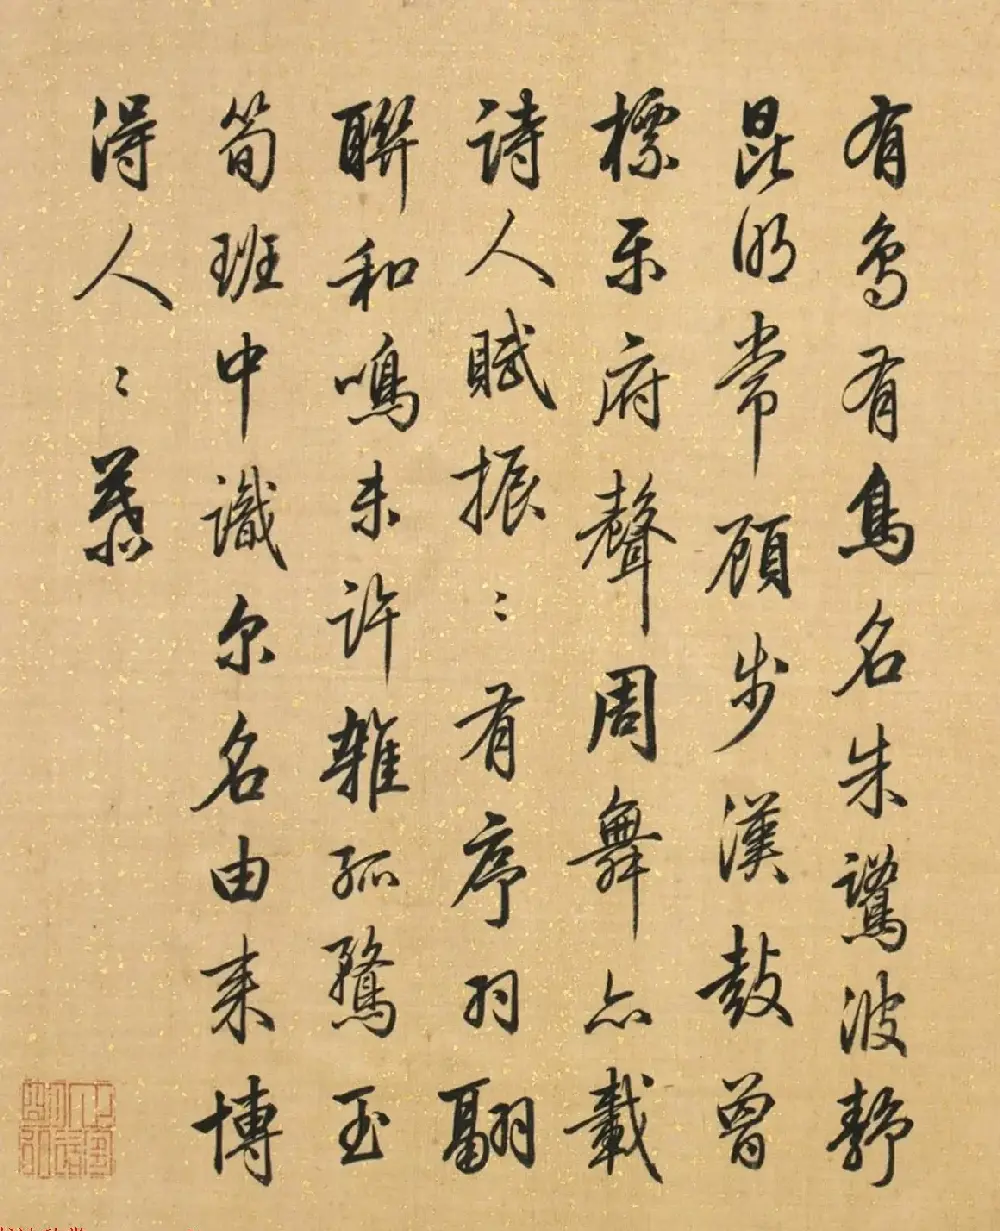 有鳥有鳥名朱鷺波靜
昆明常顧步漢鼓曾
標樂府聲周舞亦載
詩人賦振〻有序羽翩
聯和鳴未許雜孤鶩玉
筍班中識尔名由来博
得人〻慕